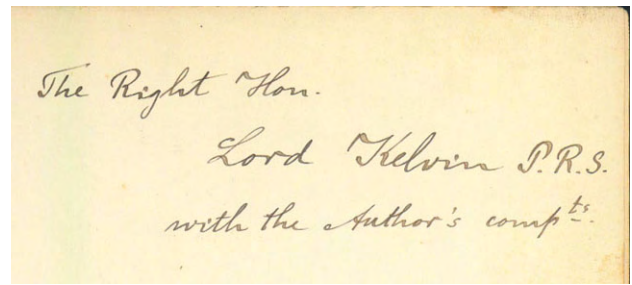 The Right Hon.
Lord Kelvin P.R.S.
with the Author's compts.